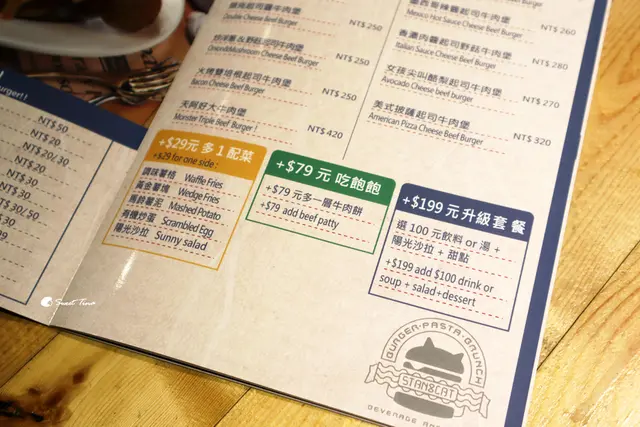 Double Cheese Beef Burger
NT$ 250
焗洋蔥&野菇起司牛肉堡
Onion&Mushroom Cheese Beef Burger
NT$ 250
火烤雙培根起司牛肉堡
Bacon Cheese Beef Burger
NT$ 250
天阿好大牛肉堡
Monster Triple Beef Burger !
NT$ 420
墨西哥辣醬起司牛肉堡
Mexico Hot Sauce Cheese Beef Burger
NT$ 260
香濃肉醬起司野菇牛肉堡
Italian Sauce Cheese Beef Burger
NT$ 280
女孩尖叫酪梨起司牛肉堡
Avocado Cheese beef Burger
NT$ 270
美式披薩起司牛肉堡
American Pizza Cheese Beef Burger
NT$ 320
urger!!
NT$ 50
NT$ 20
NT$ 20/30
NT$ 20
NT$ 30
+$29元 多 1 配菜
+$29 for one side :
調味薯格 Waffle Fries
黃金薯塊 Wedge Fries
馬鈴薯泥 Mashed Potato
有機炒蛋 Scrambled Egg
陽光沙拉 Sunny salad
+$79 元 吃飽飽
+$79 元多一層牛肉餅
+$79 add beef patty
+$199 元升級套餐
選 100 元飲料 or 湯 +
陽光沙拉 + 甜點
+$199 add $100 drink or
soup + salad+dessert
BURGER·PASTA·BRUNCH
STAN&CAT
Sweet Time